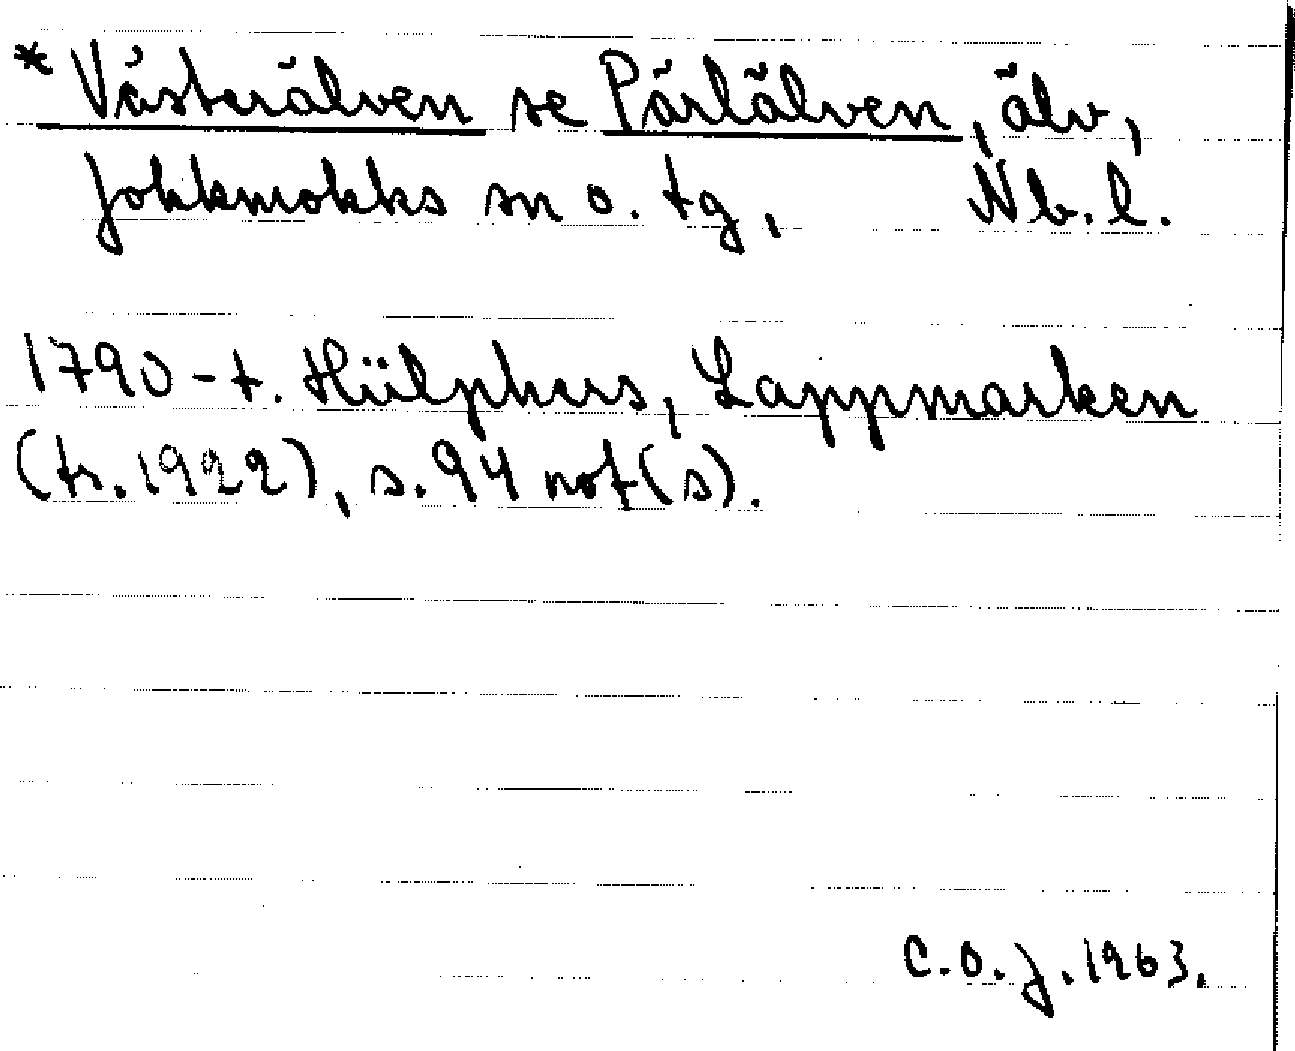 * Västerälven se Pärlälven, älv,
Jokkmokks sn o. tg, Nb. l.
1790-t. Hülphers, Lappmarken
(tr. 1922), s. 94 not(s).
C.O.J. 1963.